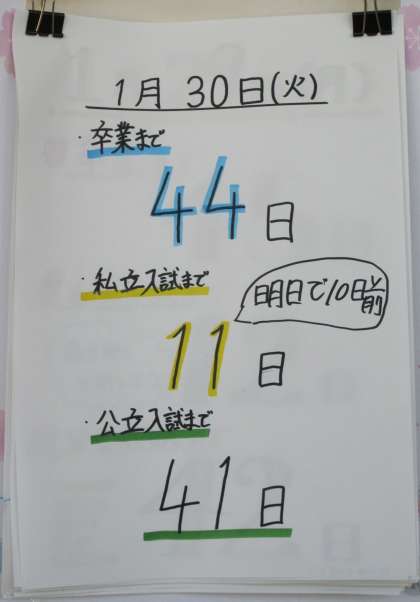 1月 30日(火)
・卒業まで
44日
・私立入試まで
明日で10日前
11日
・公立入試まで
41日